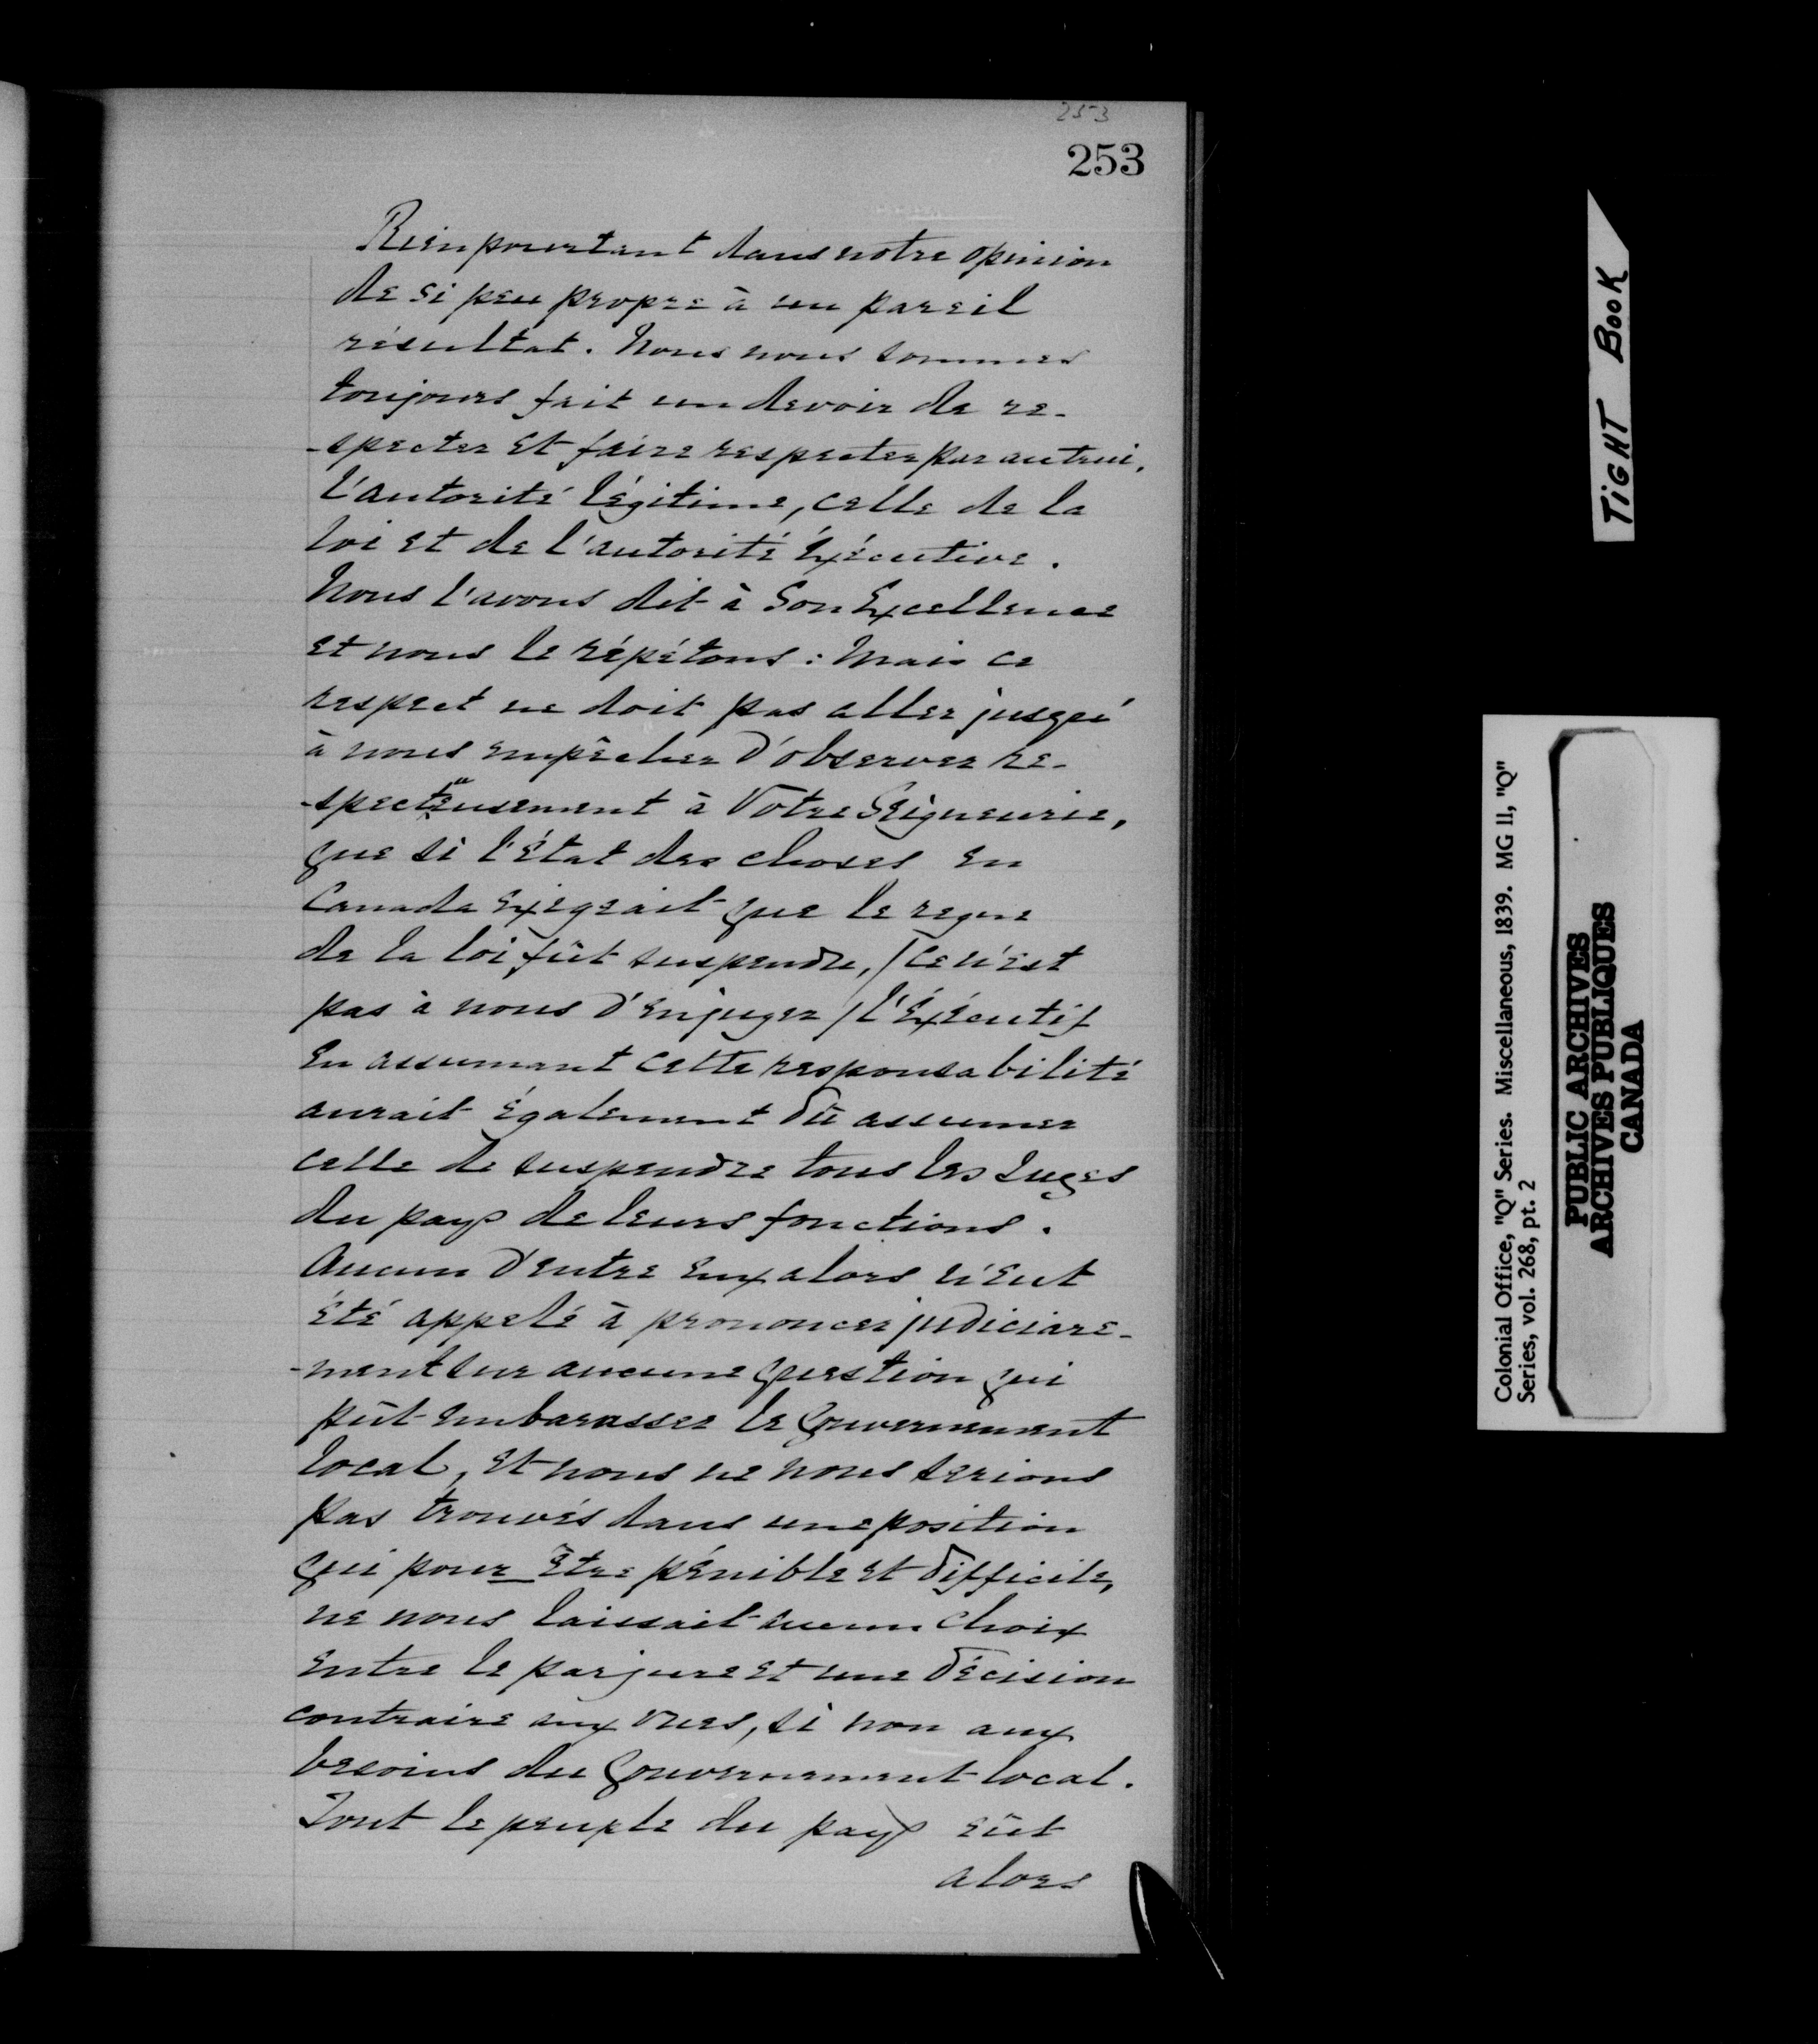 253
253
Rien pourtant dans notre opinion
de si peu propre à un pareil
résultat. Nous nous sommes
toujours fait un devoir de re-
-specter et faire respecter par autrui,
l'autorité légitime, celle de la
loi et de l'autorité Éxécutive.
Nous l'avons dit à Son Excellence
et nous le répétons: Mais ce
respect ne doit pas aller jusqu'
à nous empêcher d'observer re-
-spectueusement à Votre Seigneurie,
que si l'État des choses en
Canada exigeait que le regne
de la loi fût suspendu, (ce n'est
pas à nous d'en juger) l'Éxécutif
en assumant cette responsabilité
aurait également dû assumer
celle de suspendre tous les Juges
du pays de leurs fonctions.
Aucun d'entre eux alors n'eut
été appelé à prononcer judiciare-
-ment sur aucune question qui
pût embarasser le Gouvernement
local, et nous ne nous serions
pas trouvés dans une position
qui pour être pénible et difficile,
ne nous laissait aucun choix
entre le parjure et une décision
contraire aux vues, si non aux
besoins du Gouvernement local.
Tout le peuple du pays eût
alors
TIGHT BOOK
Colonial Office, "Q" Series. Miscellaneous, 1839. MG 11, "Q"
Series, vol. 268, pt. 2
PUBLIC ARCHIVES
ARCHIVES PUBLIQUES
CANADA